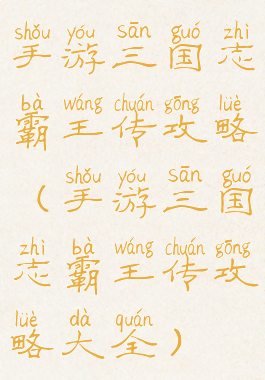 shǒu yóu sān guó zhì
手游三国志
bà wáng chuán gōng lüè
霸王传攻略
shǒu yóu sān guó
（手游三国
zhì bà wáng chuán gōng
志霸王传攻
lüè dà quán
略大全）